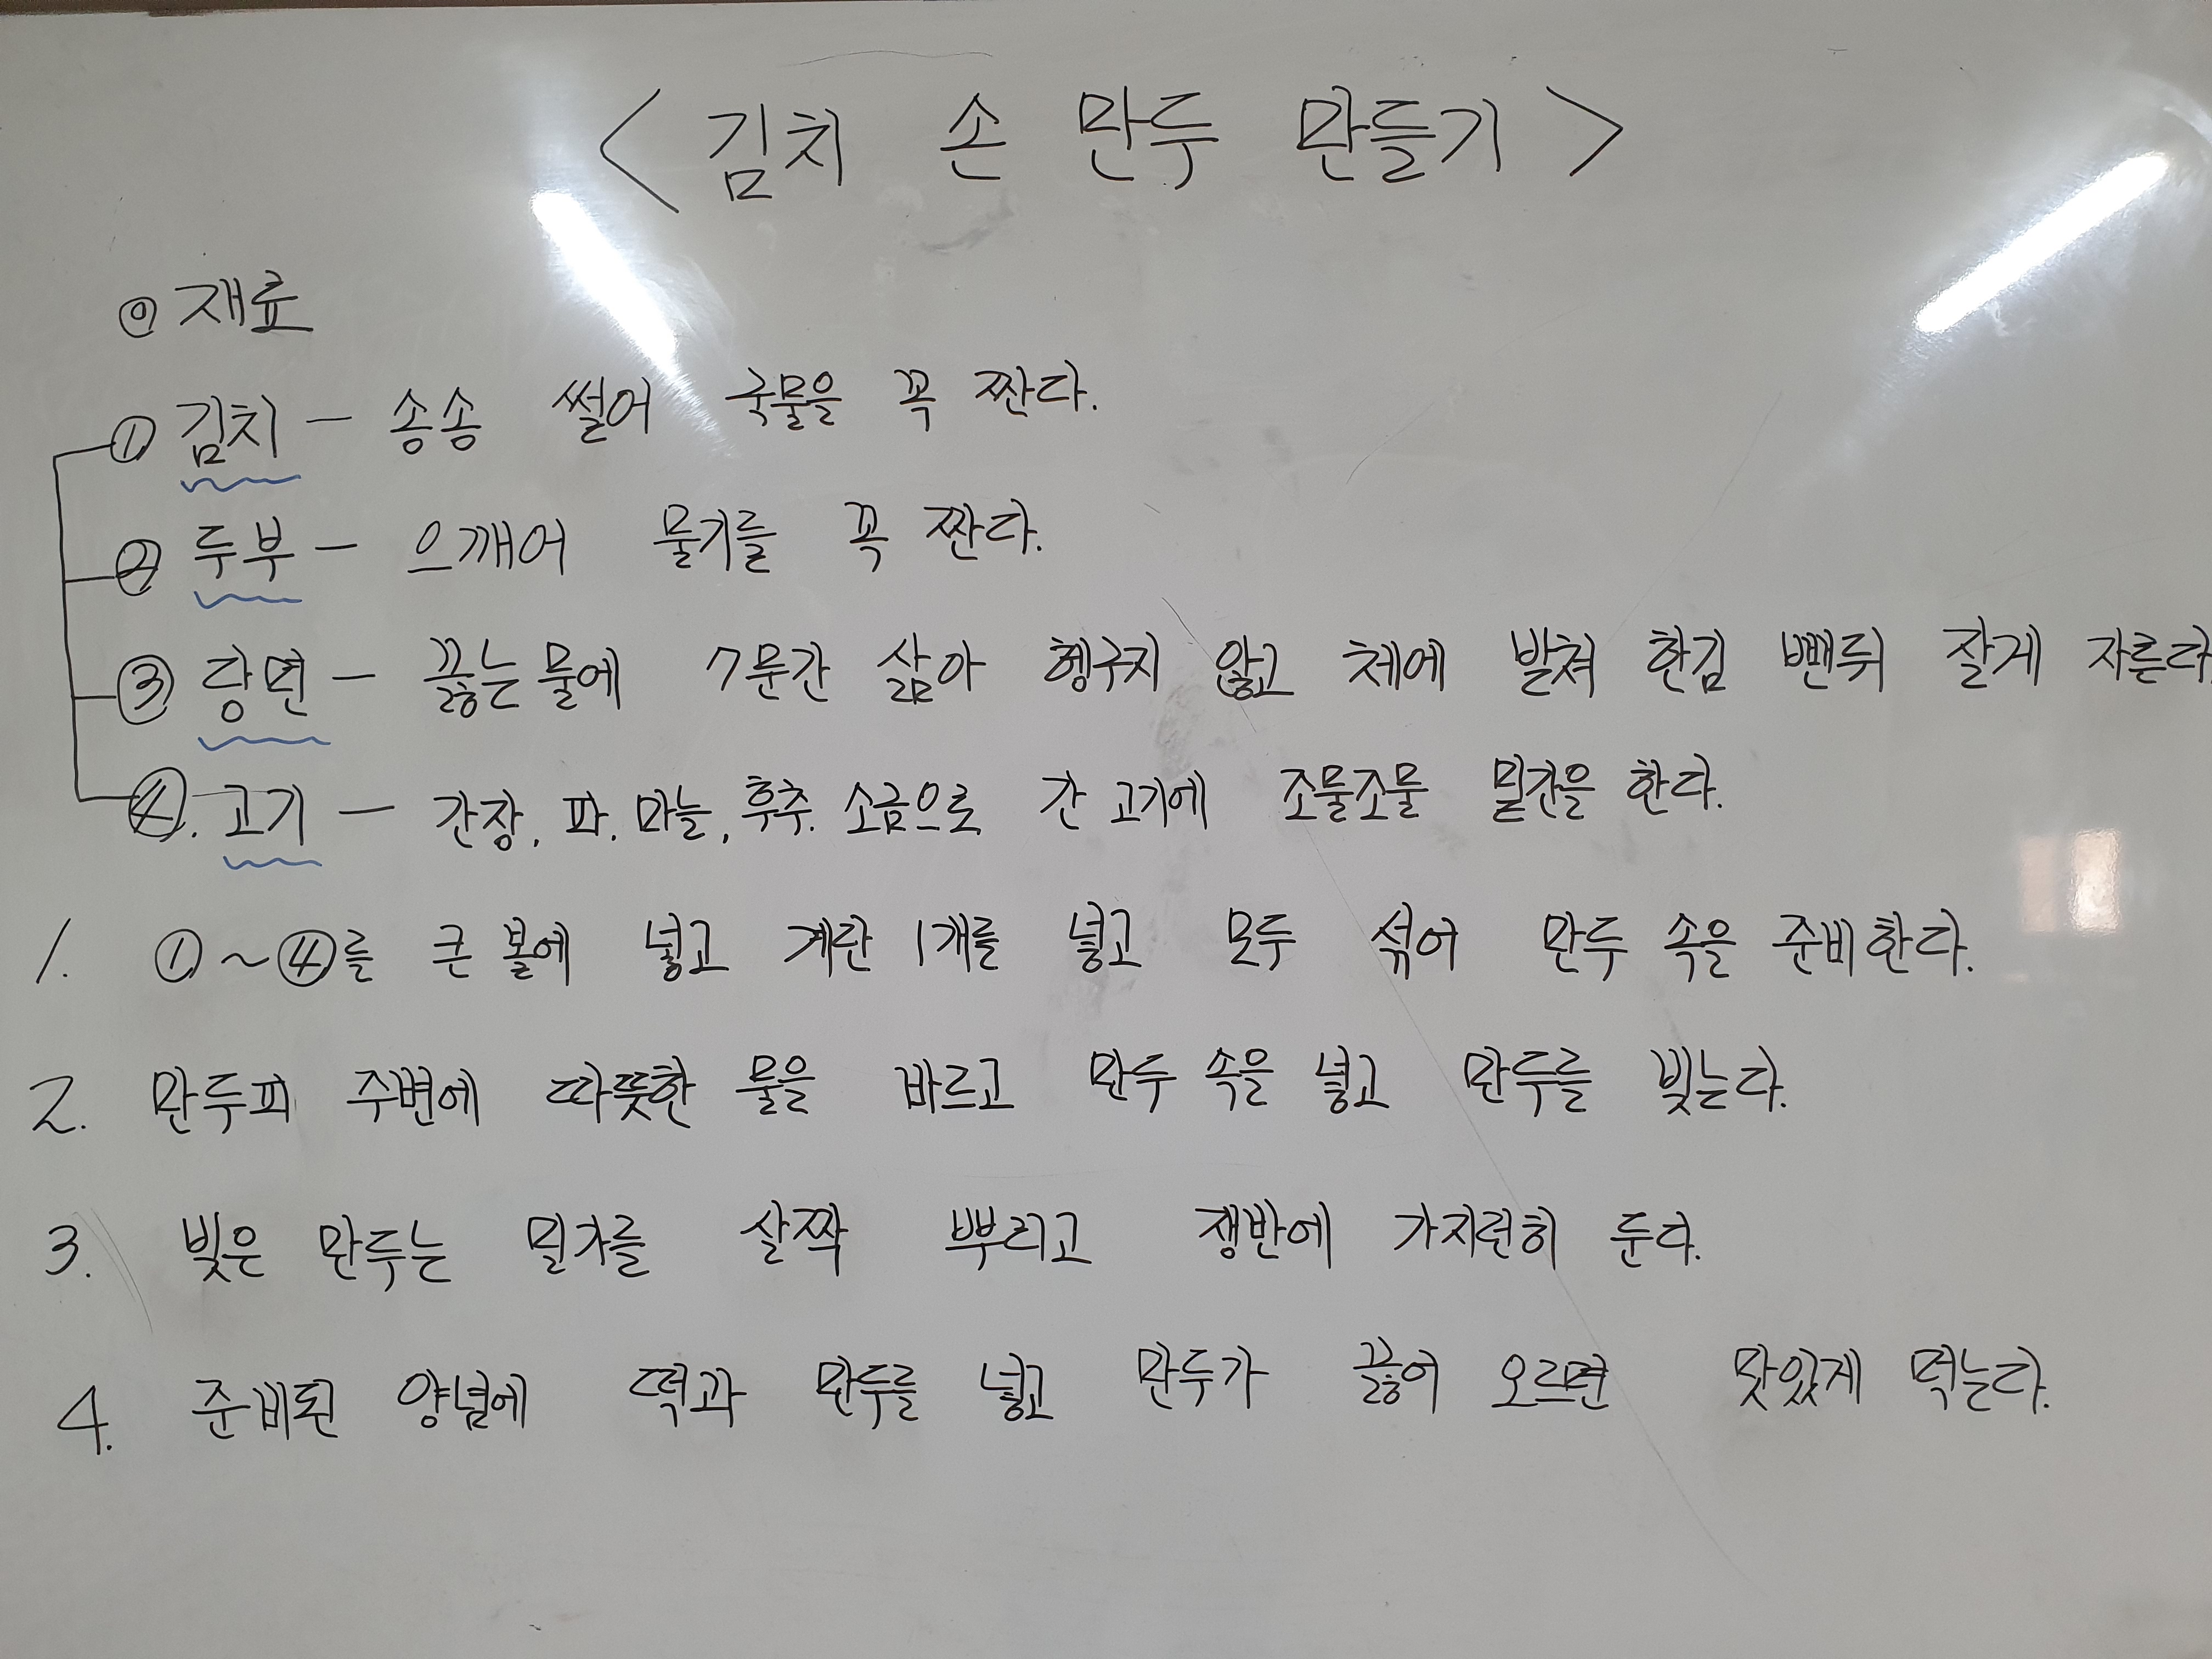 < 김치 손 만두 만들기 >
◎ 재료
① 김치 - 송송 썰어 국물을 꼭 짠다.
② 두부 - 으깨어 물기를 꼭 짠다.
③ 당면 - 끓는 물에 7분간 삶아 헹구지 않고 체에 발쳐 한김 뺀뒤 잘게 자른다.
④. 고기 - 간장, 파, 마늘, 후추, 소금으로 간 고기에 조물조물 밑간을 한다.
1. ①~④를 큰 볼에 넣고 계란 1개를 넣고 모두 섞어 만두 속을 준비한다.
2. 만두피 주변에 따뜻한 물을 바르고 만두 속을 넣고 만두를 빚는다.
3. 빚은 만두는 밀가를 살짝 뿌리고 쟁반에 가지런히 둔다.
4. 준비된 양념에 떡과 만두를 넣고 만두가 끓어 오르면 맛있게 먹는다.